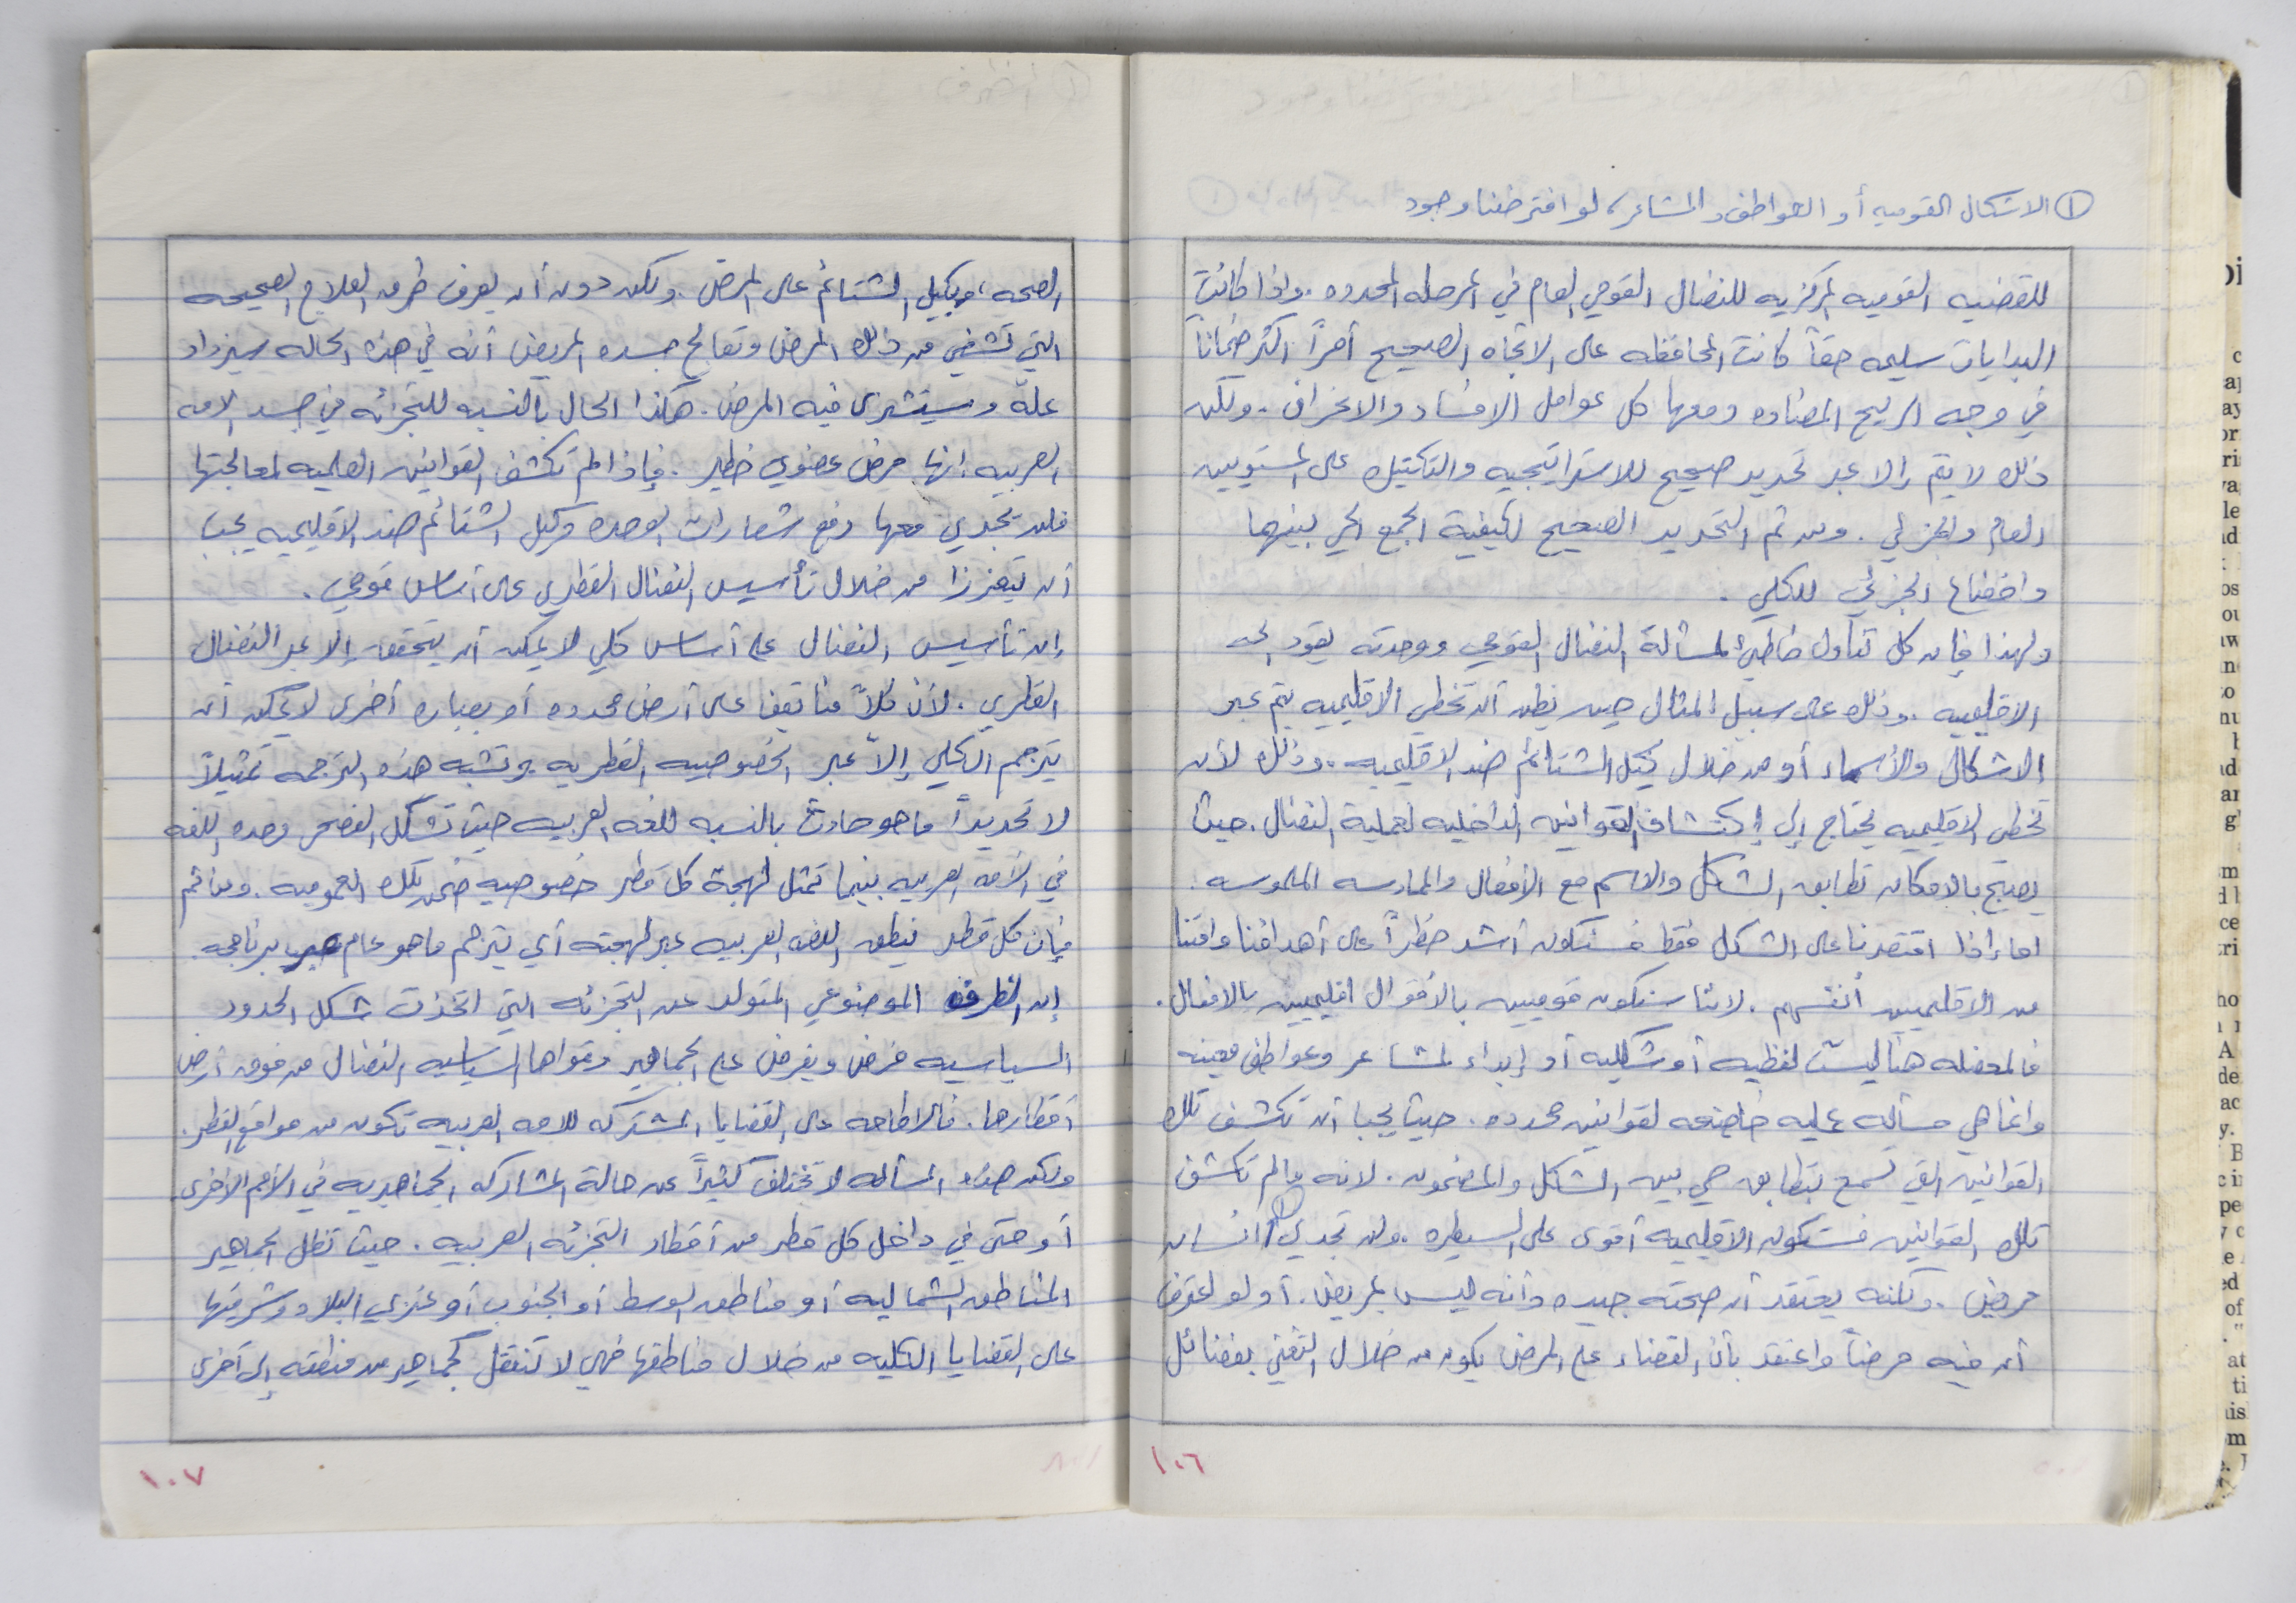 ① الاشكال القوميه أو العواطف والمشاعر، لو افترضنا وجود
للقضيه القوميه المركزيه للنضال القومي العام في المرحله المحدده. واذا كانت
البدايات سليمه حقاً كانت المحافظه على الاتجاه الصحيح أمراً اكثر ضماناً
في وجه الريح المضاده ومعها كل عوامل الافساد والانحراف. ولكن
ذلك لا يتم إلا عبر تحديد صحيح للاستراتيجيه والتكتيك على المستويين
العام والجزئي. ومن ثم التحديد الصحيح لكيفية الجمع الحي بينهما
واخضاع الجزئي للكلي.
ولهذا فإن كل تناول خاطئ لمسألة النضال القومي ووحدته يقود الى
الاقليميه. وذلك على سبيل المثال حين نظن أن تخطي الاقليميه يتم عبر
الاشكال والأسماء أو من خلال كيل الشتائم ضد الاقليميه. وذلك لأن
تخطي الاقليميه يحتاج إلى إكتشاف القوانين الداخليه لعملية النضال. حيث
يصبح بالامكان تطابق الشكل والاسم مع الأفعال والممارسه الملموسه.
اما إذا اقتصرنا على الشكل فقط فسنكون أشد خطراً على أهدافنا وامتنا
من الاقليميين أنفسهم. لاننا سنكون قوميين بالأقوال اقليميين بالافعال.
فالمعضله هنا ليست لفظيه أو شكليه أو إبداء لمشاعر وعواطف معينه
وانما هي مسأله عمليه خاضعه لقوانين محدده. حيث يجب أن نكشف تلك
القوانين التي تسمح بتطابق حي بين الشكل والمضمون. لانه مالم نكشف
تلك القوانين فستكون الاقليميه أقوى على السيطره. ولن تجدي ① انسان
مريض. ولكنه يعتقد أن صحته جيده وأنه ليس بمريض. أو لو اعترف
أن فيه مرضاً واعتقد بأن القضاء على المرض يكون من خلال التغني بفضائل
١٠٦
الصحه، ويكيل الشتائم على المرض. ولكن دون أن يعرف طرق العلاج الصحيحه
التي تشفي من ذلك المرض وتعالج جسده المريض أنه في هذه الحاله سيزداد
علّه وسيستشري فيه المرض. هكذا الحال بالنسبه للتجزئه في جسد الامه
العربيه إنها مرض عضوي خطير. فإذا لم نكشف القوانين العلميه لمعالجتها
فلن يجدي معها رفع شعارات الوحده وكيل الشتائم ضد الاقليميه يجب
أن يتعززا من خلال تأسيس النضال القطري على أساس قومي.
إن تأسيس النضال على أساس كلي لا يمكن أن يتحقق إلا عبر النضال
القطري. لأن كلاً منا يقف على أرض محدده أو بعباره أخرى لا يمكن أن
يترجم الكلي إلاّ عبر الخصوصيه القطريه وتشبه هذه الترجمه تمثيلاً
لا تحديداً ما هو حادث بالنسبه للغه العربيه حيث تشكل الفصحى وحده اللغه
في الأمه العربيه بينما تمثل لهجة كل قطر خصوصيه ضمن تلك العموميه. ومن ثم
فإن كل قطر ينطق اللغه العربيه عبر لهجته أي يترجم ما هو عام عبر برنامجه.
إن الظرف الموضوعي المتولد عن التجزئه التي اتخذت شكل الحدود
السياسيه فرض ويفرض على الجماهير وقواها السياسيه النضال من فوق أرض
أقطارها. فالاطاحه على القضايا المشتركه للامه العربيه تكون من مواقع القطر.
ولكن هذه المسأله لا تختلف كثيراً عن حالة المشاركه الجماهيريه في الأمم الأخرى
أو حتى في داخل كل قطر من أقطار التجزئه العربيه. حيث تطل الجماهير
المناطق الشماليه أو مناطق الوسط أو الجنوب أو غربي البلاد وشرقيها
على القضايا الكليه من خلال مناطقها فهي لا تنتقل كجماهير من منطقه إلى أخرى
١٠٧